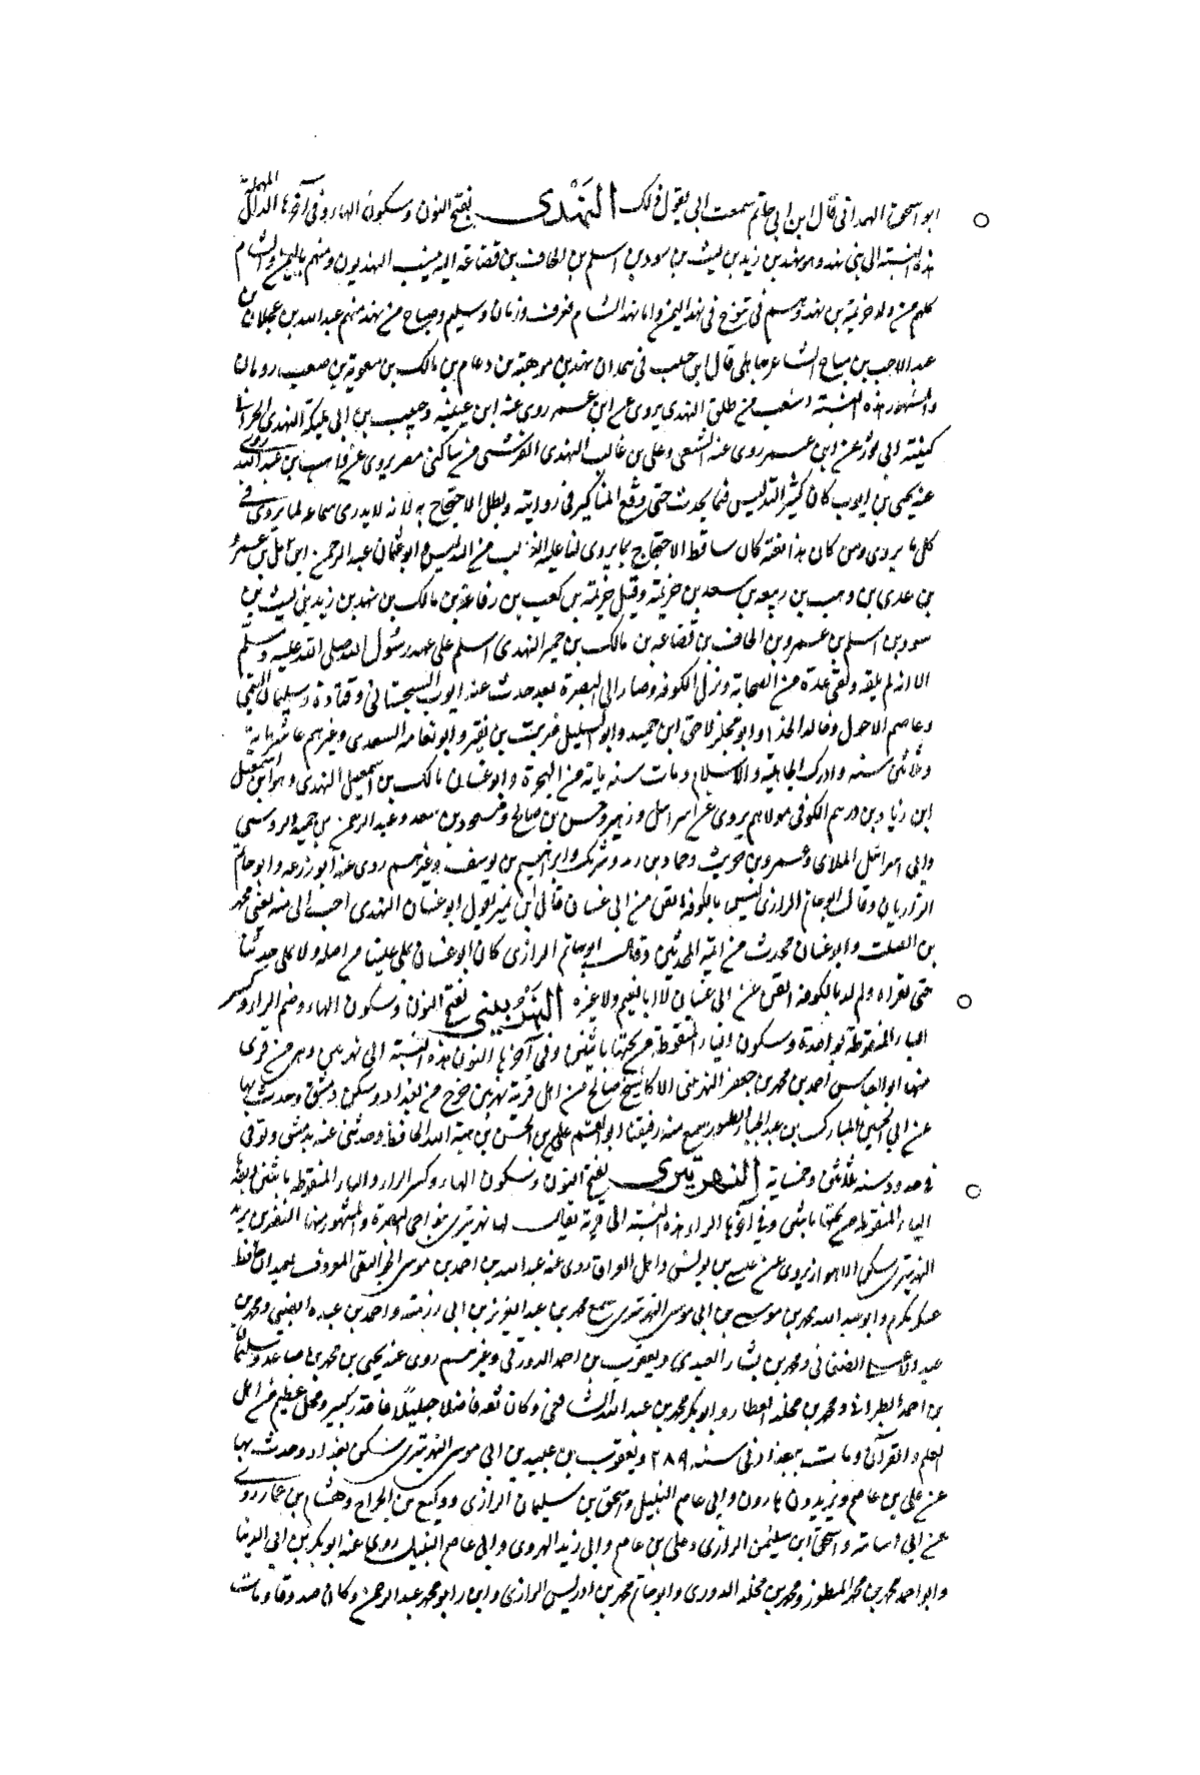 ابو اسحق الهمدانى قال ابن ابى حاتم سمعت ابى يقول ذلك النَهْدى بفتح النون وسكون الهاء وفى آخرها الدال المهملة
هذه النسبة الى بنى نهد وهو نهد بن زيد بن ليث بن سود بن اسلم بن الحاف بن قضاعه اليه ينسب النهديون ومنهم باليمن والشام
كلهم من ولد خزيمة بن نهد وسم فى تنوخ فى نهد اليمن واما نهد الشام فعرف وزمان وسليم وصباح من نهد منهم عبدالله بن عجلان بن
عبد الاحب بن صباح الشاعر جاهلى قال ابن حبيب فى همدان نهد بن مرهبة بن دعام بن مالك بن معوية بن صعب رومان
والمشهور بهذه النسبة من طلق النهدى يروى عن ابن عمر روى عنه ابن عيينه وحبيب بن ابى مليكة النهدى
كنيته ابى ثور عن ابن عمر روى عنه الشعبى وعلى بن غالب النهدى القرشى من ساكنى مصر يروى عن واهب بن عبد الله روى
عنه يحيى بن ايوب كان كثير التدليس فيما يحدث حتى وقع المناكير فى روايته وبطل الاحتجاج به لانه لا يدرى سماعه لما يروى فى
كل ما يروى ومن كان هذا نعته كان ساقط الاحتجاج بما يروى لما عليه الغالب من التدليس وابو عثمان عبد الرحمن ابن مل بن عمرو
بن عدى بن وهب بن ربيعه بن سعد بن خزيمة وقيل خزيمة بن كعب بن رفاعة بن مالك بن نهد بن زيد بن ليث بن
سود بن اسلم بن عمرو بن الحاف بن قضاعه بن مالك بن حمير النهدى اسلم على عهد رسول الله صلى الله عليه وسلم
الا انه لم يلقه ولقى عدة من الصحابة ونزل الكوفه وصار الى البصرة بعد حدث عنه ايوب السجستانى وقتادة وسليمان التيمى
وعاصم الاحول وخالد الحذا وابو مجلز لاحق ابن حميد وابو السليل ضريب بن نقير وابو نعامه السعدى وغيرهم عاش مايه
وثلاثين سنه وادرك الجاهلية والاسلام ومات سنه ماية من الهجرة وابو غسان مالك بن اسمعيل النهدى وهو ابن اسمعيل
ابن زياد بن درهم الكوفى مولاهم يروى عن اسرائيل وزهير وحسن بن صالح ومسعود بن سعد وعبد الرحمن بن حميد الرؤسى
وابى اسرائيل الملائى وعمرو بن حريث وحماد بن زيد وشريك وابراهيم بن يوسف وغيرهم روى عنه ابو زرعه وابو حاتم
الرازيان وقال ابو حاتم الرازى ليس بالكوفه اتقن من ابى غسان قال ابن نمير يقول ابو غسان النهدى احب الى منه يعنى محمد
بن الصلت وابو غسان محدث من ايمة المحدثين وقال ابو حاتم الرازى كان ابو غسان يملى علينا من اصله ولا يملى حديثا
حتى يقراه ولم ار بالكوفه اتقن من ابى غسان لا ابا نعيم ولا غيره النَهْرُبينى بفتح النون وسكون الهاء وضم الراء وكسر
الباء المنقوطة بواحدة وسكون الياء المنقوطة من تحتها باثنين وفى آخرها النون هذه النسبة الى نهربين وهى من قرى
منها ابو العباس احمد بن محمد بن جعفر النهربينى الاكاف شيخ صالح من اهل قرية نهربين خرج من بغداد وسكن دمشق وحدث بها
عن ابى الحسين المبارك بن عبد الجبار الطيورى سمع منه رفيقنا ابو القسم على بن الحسن بن هبة الله الحافظ وحدثنى عنه بدمشق وتوفى
فى حدود سنه ثلاثين وخمسماية النهرتيرى بفتح النون وسكون الهاء وكسر الراء والتاء المنقوطه باثنين وبعدها
الياء المنقوطه من تحتها باثنين وفى آخرها الراء هذه النسبة الى قرية يقال لها نهرتيرى بنواحى البصرة والمشهور بهذا يزيد
النهرتيرى سكن الاهواز يروى عن عيسى بن يونس واهل العراق روى عنه عبد الله بن احمد بن موسى الجواليقى المعروف بعبدان حافظ
عسكر مكرم وابو عبد الله محمد بن موسى بن ابى موسى النهرتيرى سمع محمد بن عبد العزيز بن ابى رزمة واحمد بن عبده الضبى ومحمد بن
عبد الاعلى الصنعانى ومحمد بن بشار العبدى ويعقوب بن احمد الدورقى وغيرهم روى عنه يحيى بن محمد بن صاعد وسليمان
بن احمد الطبرانى ومحمد بن مخلد العطار وابو بكر محمد بن عبد الله الشافعى وكان ثقه فاضلا جليلا ذا قدر كبير ومحل عظيم من اهل
العلم والقرآن ومات ببغداد فى سنه ۲۸۹ ويعقوب بن عبيد بن ابى موسى النهرتيرى سكن بغداد وحدث بها
عن على بن عاصم ويزيد بن هارون وابى عاصم النبيل واسحق بن سليمان الرازى ووكيع بن الجراح وهشام بن عمار روى
عن ابى اسامة واسحق ابن سليمن الرازى وعلى بن عاصم وابى زيد الهروى وابى عاصم النبيل روى عنه ابو بكر بن ابى الدنيا
وابو احمد محمد بن محمد المطرز ومحمد بن مخلد الدورى وابو حاتم محمد بن ادريس الرازى وابن ابو محمد عبد الرحمن وكان صدوقا ومات